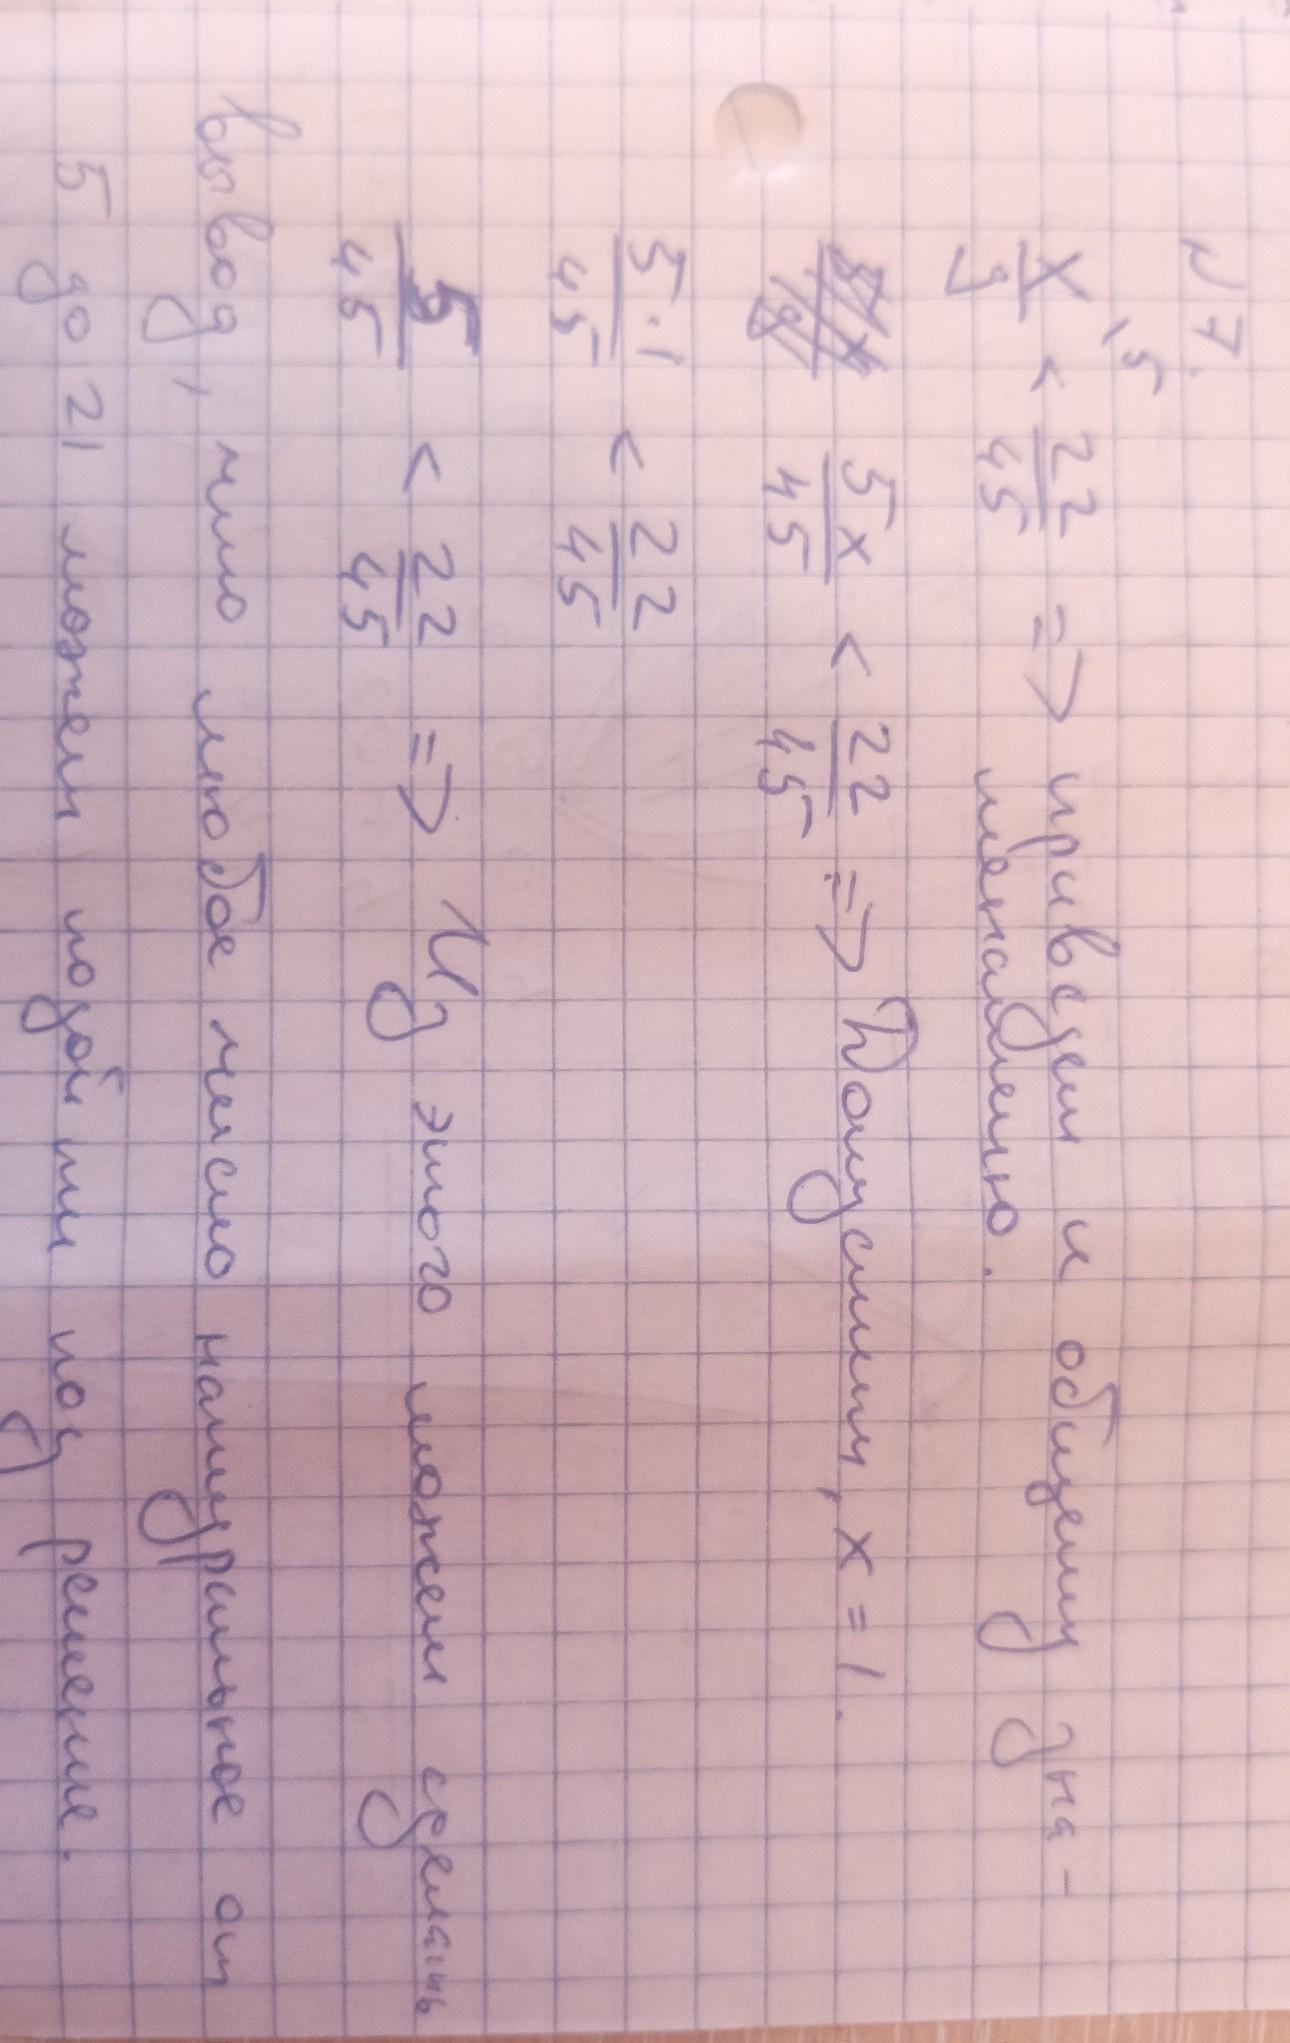 N 7.
\5
x/9 < 22/45 => приведем и общему зна-
менателю.
5x/45 < 22/45 => Допустим, x = 1.
5·1/45 < 22/45
5/45 < 22/45 => Из этого можем сделать
вывод, что любое число натуральное от
5 до 21 может подойти под решение.